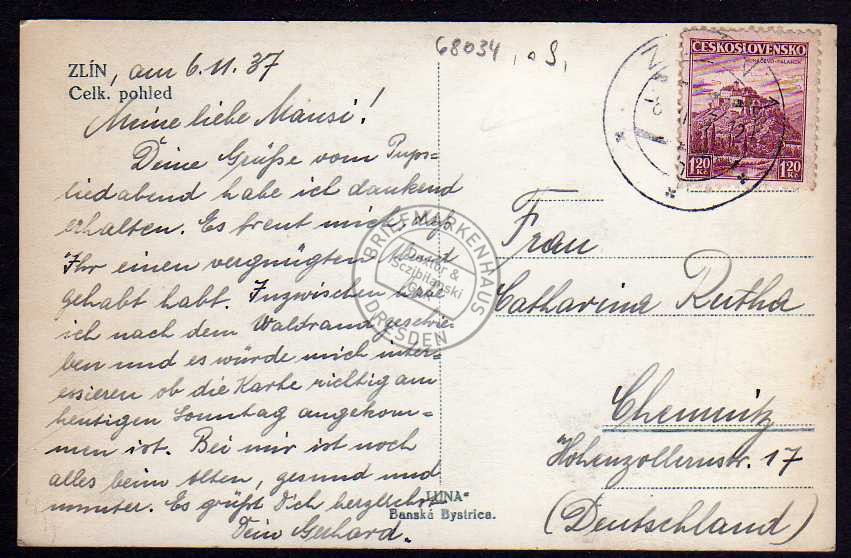 68034
ZLÍN, am 6.11.37
Celk. pohled
Meine liebe Mausi!
Deine Grüße vom Pups-
liedabend habe ich dankend
erhalten. Es freut mich, daß
Ihr einen vergnügten Abend
gehabt habt. Inzwischen habe
ich nach dem Waldrand geschrie-
ben und es würde mich inter-
essieren ob die Karte richtig am
heutigen Sonntag angekom-
men ist. Bei mir ist noch
alles beim alten, gesund und
munter. Es grüßt Dich herzlichst
Dein Gerhard.
"LUNA"
Banská Bystrica.
ČESKOSLOVENSKO
MUKAČEVO-PALANOK
1.20 Kč 1.20 Kč
Frau
Catharina Rutha
Chemnitz
Hohenzollernstr. 17
(Deutschland)
BRIEFMARKENHAUS
&
Sczibilanski
DRESDEN